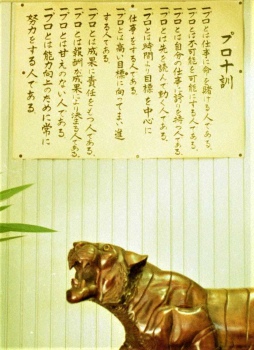 プロ十訓
一プロとは仕事に命を賭ける人である。
一プロとは不可能を可能にする人である。
一プロとは自分の仕事に誇りを持つ人である。
一プロとは先を読んで動く人である。
一プロとは時間より目標を中心に
仕事をする人である。
一プロとは高い目標に向ってまい進
する人である。
一プロとは成果に責任をもつ人である。
一プロとは報酬が成果により決まる人である。
一プロとは甘えのない人である。
一プロとは能力向上のために常に
努力をする人である。